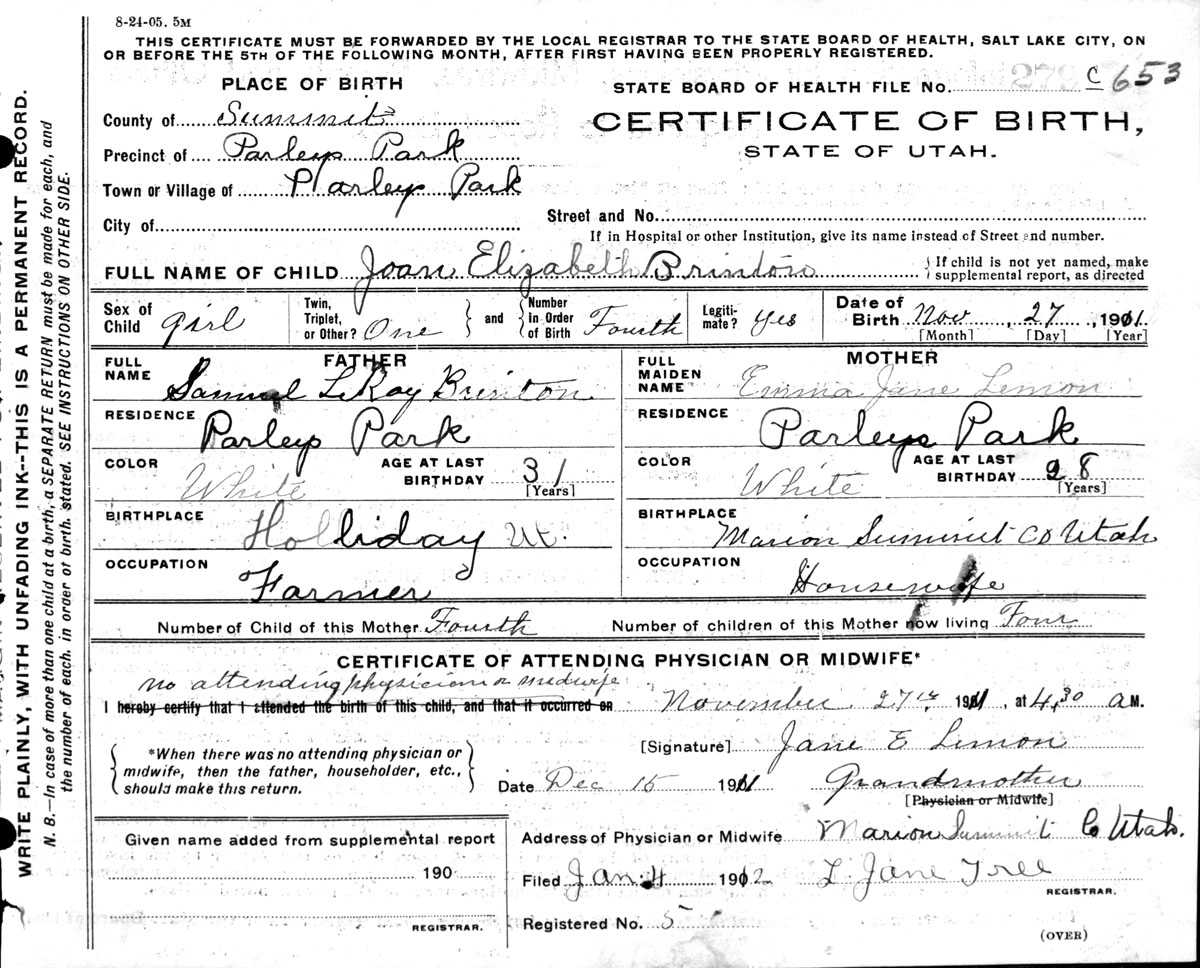 8-24-05. 5M
THIS CERTIFICATE MUST BE FORWARDED BY THE LOCAL REGISTRAR TO THE STATE BOARD OF HEALTH, SALT LAKE CITY, ON
OR BEFORE THE 5TH OF THE FOLLOWING MONTH, AFTER FIRST HAVING BEEN PROPERLY REGISTERED.
PLACE OF BIRTH
STATE BOARD OF HEALTH FILE No. C 653
County of Summit
CERTIFICATE OF BIRTH,
STATE OF UTAH.
Precinct of Parleys Park
Town or Village of Parleys Park
City of
Street and No.
If in Hospital or other Institution, give its name instead of Street and number.
FULL NAME OF CHILD Joan Elizabeth Brinton
{ If child is not yet named, make
supplemental report, as directed
Sex of Child girl
Twin, Triplet, or Other? One } and { Number In Order of Birth Fourth
Legiti-mate? Yes
Date of Birth Nov, 27, 1911.
[Month] [Day] [Year]
FATHER
FULL NAME Samuel LeRoy Brinton
RESIDENCE Parleys Park
COLOR White AGE AT LAST BIRTHDAY 31 [Years]
BIRTHPLACE Holliday Ut.
OCCUPATION Farmer
MOTHER
FULL MAIDEN NAME Emma Jane Lemon
RESIDENCE Parleys Park
COLOR White AGE AT LAST BIRTHDAY 28 [Years]
BIRTHPLACE Marion Summit Co Utah
OCCUPATION Housewife
Number of Child of this Mother Fourth Number of children of this Mother now living Four
CERTIFICATE OF ATTENDING PHYSICIAN OR MIDWIFE*
no attending physician or midwife
I hereby certify that I attended the birth of this child, and that it occurred on November 27th, 1911, at 4,30 A M.
*When there was no attending physician or
midwife, then the father, householder, etc.,
should make this return.
[Signature] Jane E Lemon
Date Dec 15 1911 Grandmother
[Physician or Midwife]
Given name added from supplemental report
190
REGISTRAR.
Address of Physician or Midwife Marion Summit Co Utah.
Filed Jan. 4 1912 L. Jane Tree
REGISTRAR.
Registered No. 5
(OVER)
WRITE PLAINLY, WITH UNFADING INK--THIS IS A PERMANENT RECORD.
N. B.—In case of more than one child at a birth, a SEPARATE RETURN must be made for each, and
the number of each, in order of birth, stated. SEE INSTRUCTIONS ON OTHER SIDE.